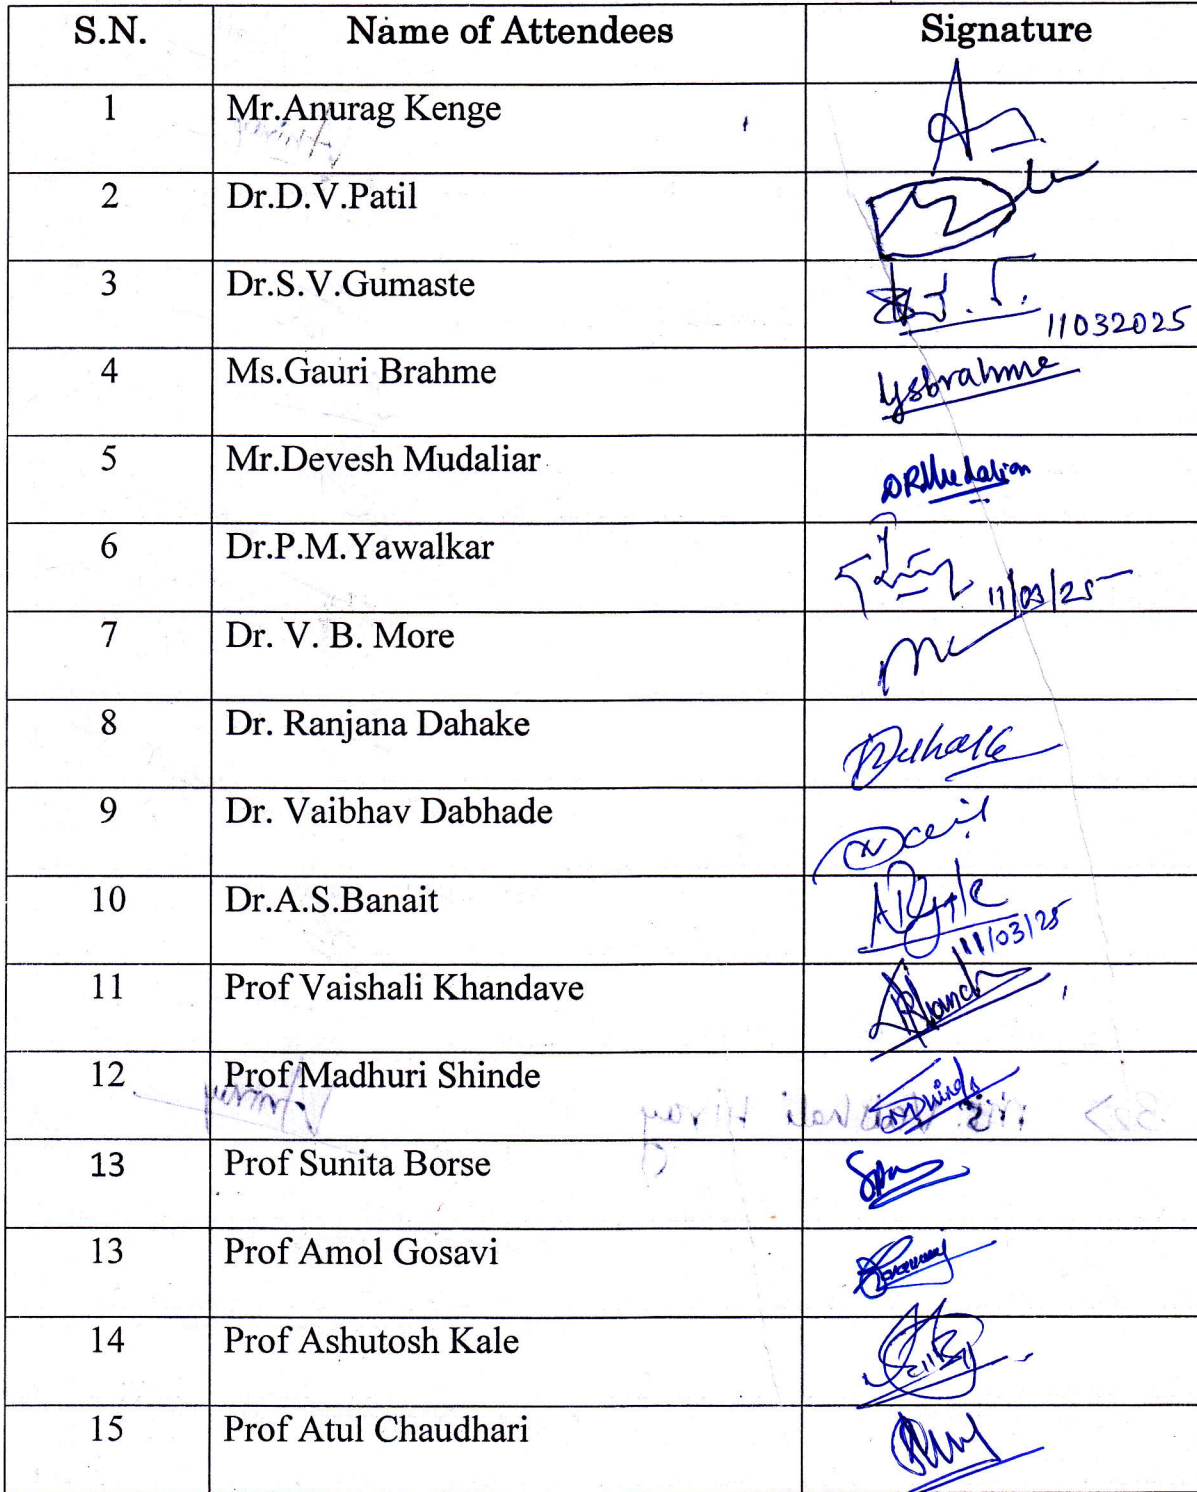 S.N. Name of Attendees Signature
1 Mr.Anurag Kenge
2 Dr.D.V.Patil
3 Dr.S.V.Gumaste 11032025
4 Ms.Gauri Brahme ysbrahme
5 Mr.Devesh Mudaliar DRMudaliar
6 Dr.P.M.Yawalkar 11/03/25
7 Dr. V. B. More
8 Dr. Ranjana Dahake
9 Dr. Vaibhav Dabhade
10 Dr.A.S.Banait 11/03/25
11 Prof Vaishali Khandave
12 Prof Madhuri Shinde
13 Prof Sunita Borse
13 Prof Amol Gosavi
14 Prof Ashutosh Kale
15 Prof Atul Chaudhari